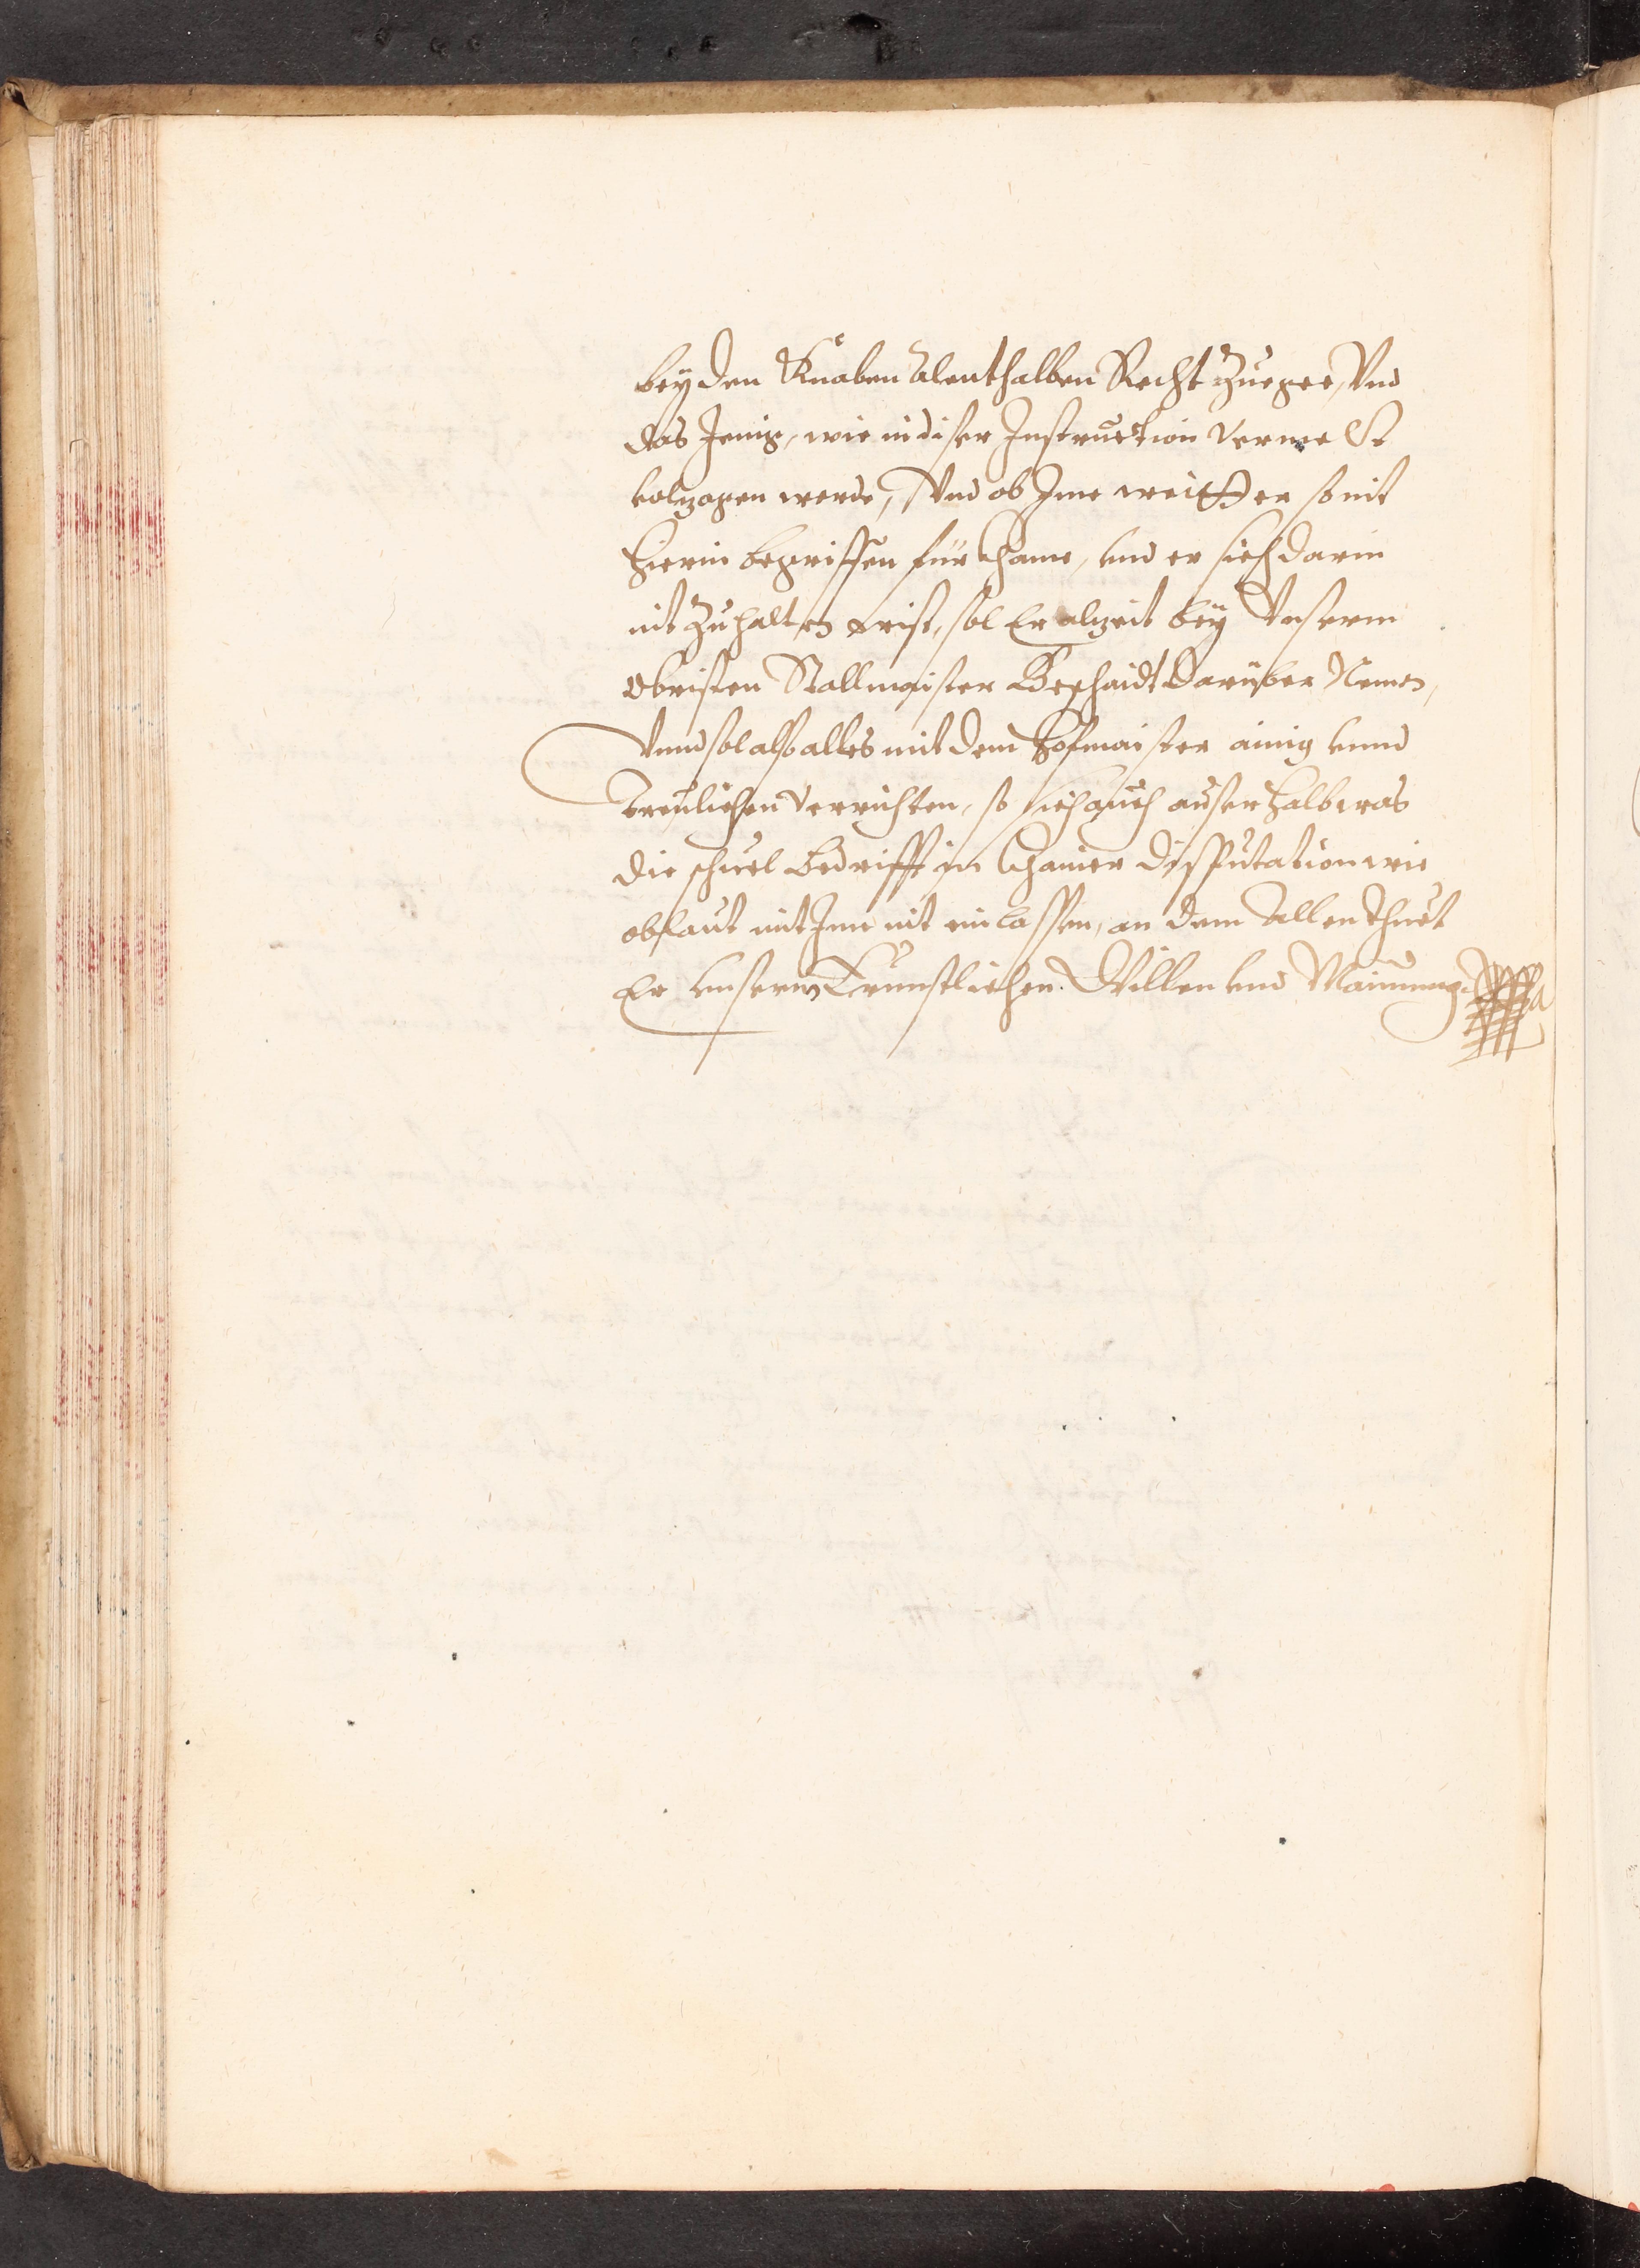 bey den Knaben alenthalben Recht Zuegee, Vnd
das Jenig, wie in diser Instruction Vermelt
volzogen werde, Vnd ob Jme weitter so nit
hierin begriffen für khame, vnd er sich darin
nit Zuhalten wist, sol Er alzeit bey Vnserm
Obristen Stallmaister Beschaidt darüber Nemen,
Vnnd sol also alles mit dem Hofmaister ainig vnnd
Treulichen Verrichten, so sich auch ausserhalb was
die schuel bedrifft in khainer Disputation wie
oblaut mit Jme nit einlassen, an dem allen thuet
Er vnsern Ernnstlichen Willen vnd Mainung